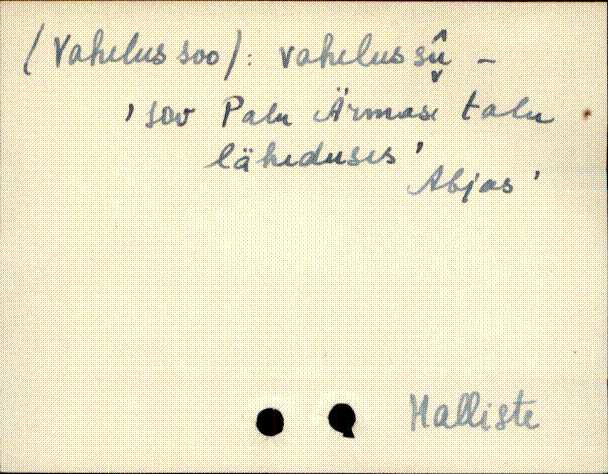 (Vahelus soo): vahelus sû̬ –
' soo Palu Ärmase talu
läheduses'
Abjas'
Halliste